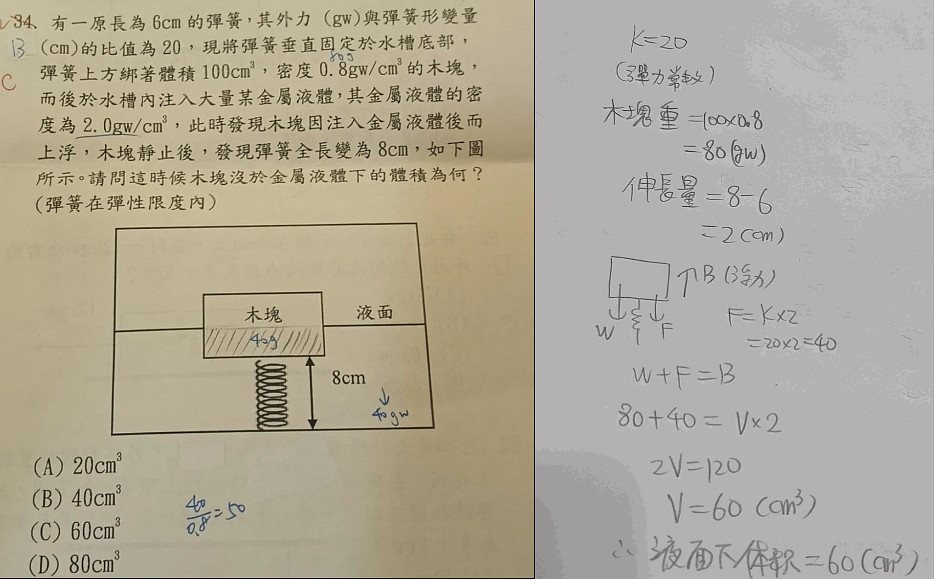 34. 有一原長為6cm的彈簧,其外力(gw)與彈簧形變量
B (cm)的比值為20,現將彈簧垂直固定於水槽底部,
80g
C 彈簧上方綁著體積100cm³,密度0.8gw/cm³的木塊,
而後於水槽內注入大量某金屬液體,其金屬液體的密
度為2.0gw/cm³,此時發現木塊因注入金屬液體後而
上浮,木塊靜止後,發現彈簧全長變為8cm,如下圖
所示。請問這時候木塊沒於金屬液體下的體積為何?
(彈簧在彈性限度內)
木塊
液面
40g
8cm
↓
40gw
(A) 20cm³
(B) 40cm³
(C) 60cm³
(D) 80cm³
40/0.8=50
K=20
(彈力常數)
木塊重=100×0.8
=80(gw)
伸長量=8-6
=2(cm)
↑B(浮力)
W
F
F=K×2
=20×2=40
W+F=B
80+40=V×2
2V=120
V=60 (cm³)
∴液面下体积=60(cm³)